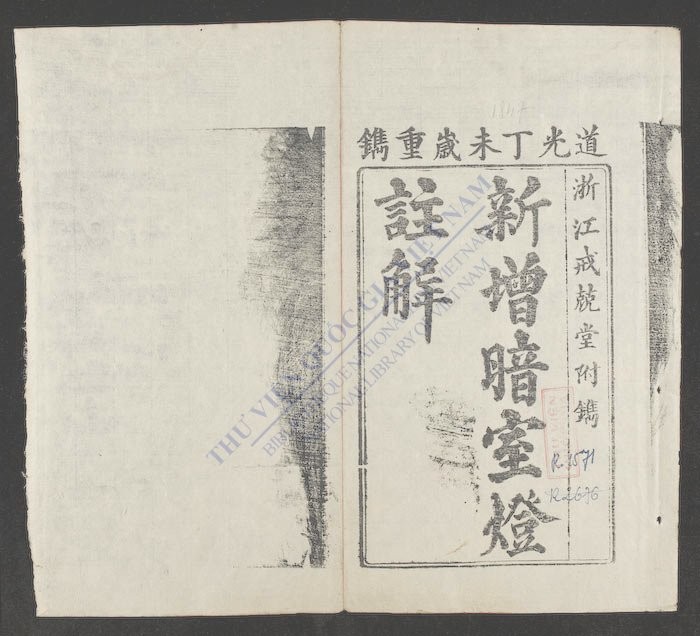 1847
道光丁未歲重鐫
浙江戒殸堂附鐫
新增暗室燈
註解
R.1571
R.2676
THƯ VIỆN QUỐC GIA VIỆT NAM
BIBLIOTHÈQUE NATIONALE DU VIETNAM
NATIONAL LIBRARY OF VIETNAM